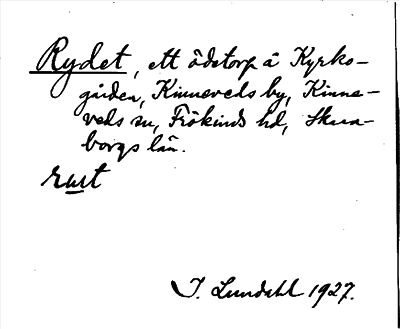 Rydet, ett ödetorp å Kyrko-
gården, Kinneveds by, Kinne-
veds sn, Frökinds hd, Skara-
borgs län.
I. Lundahl 1927.